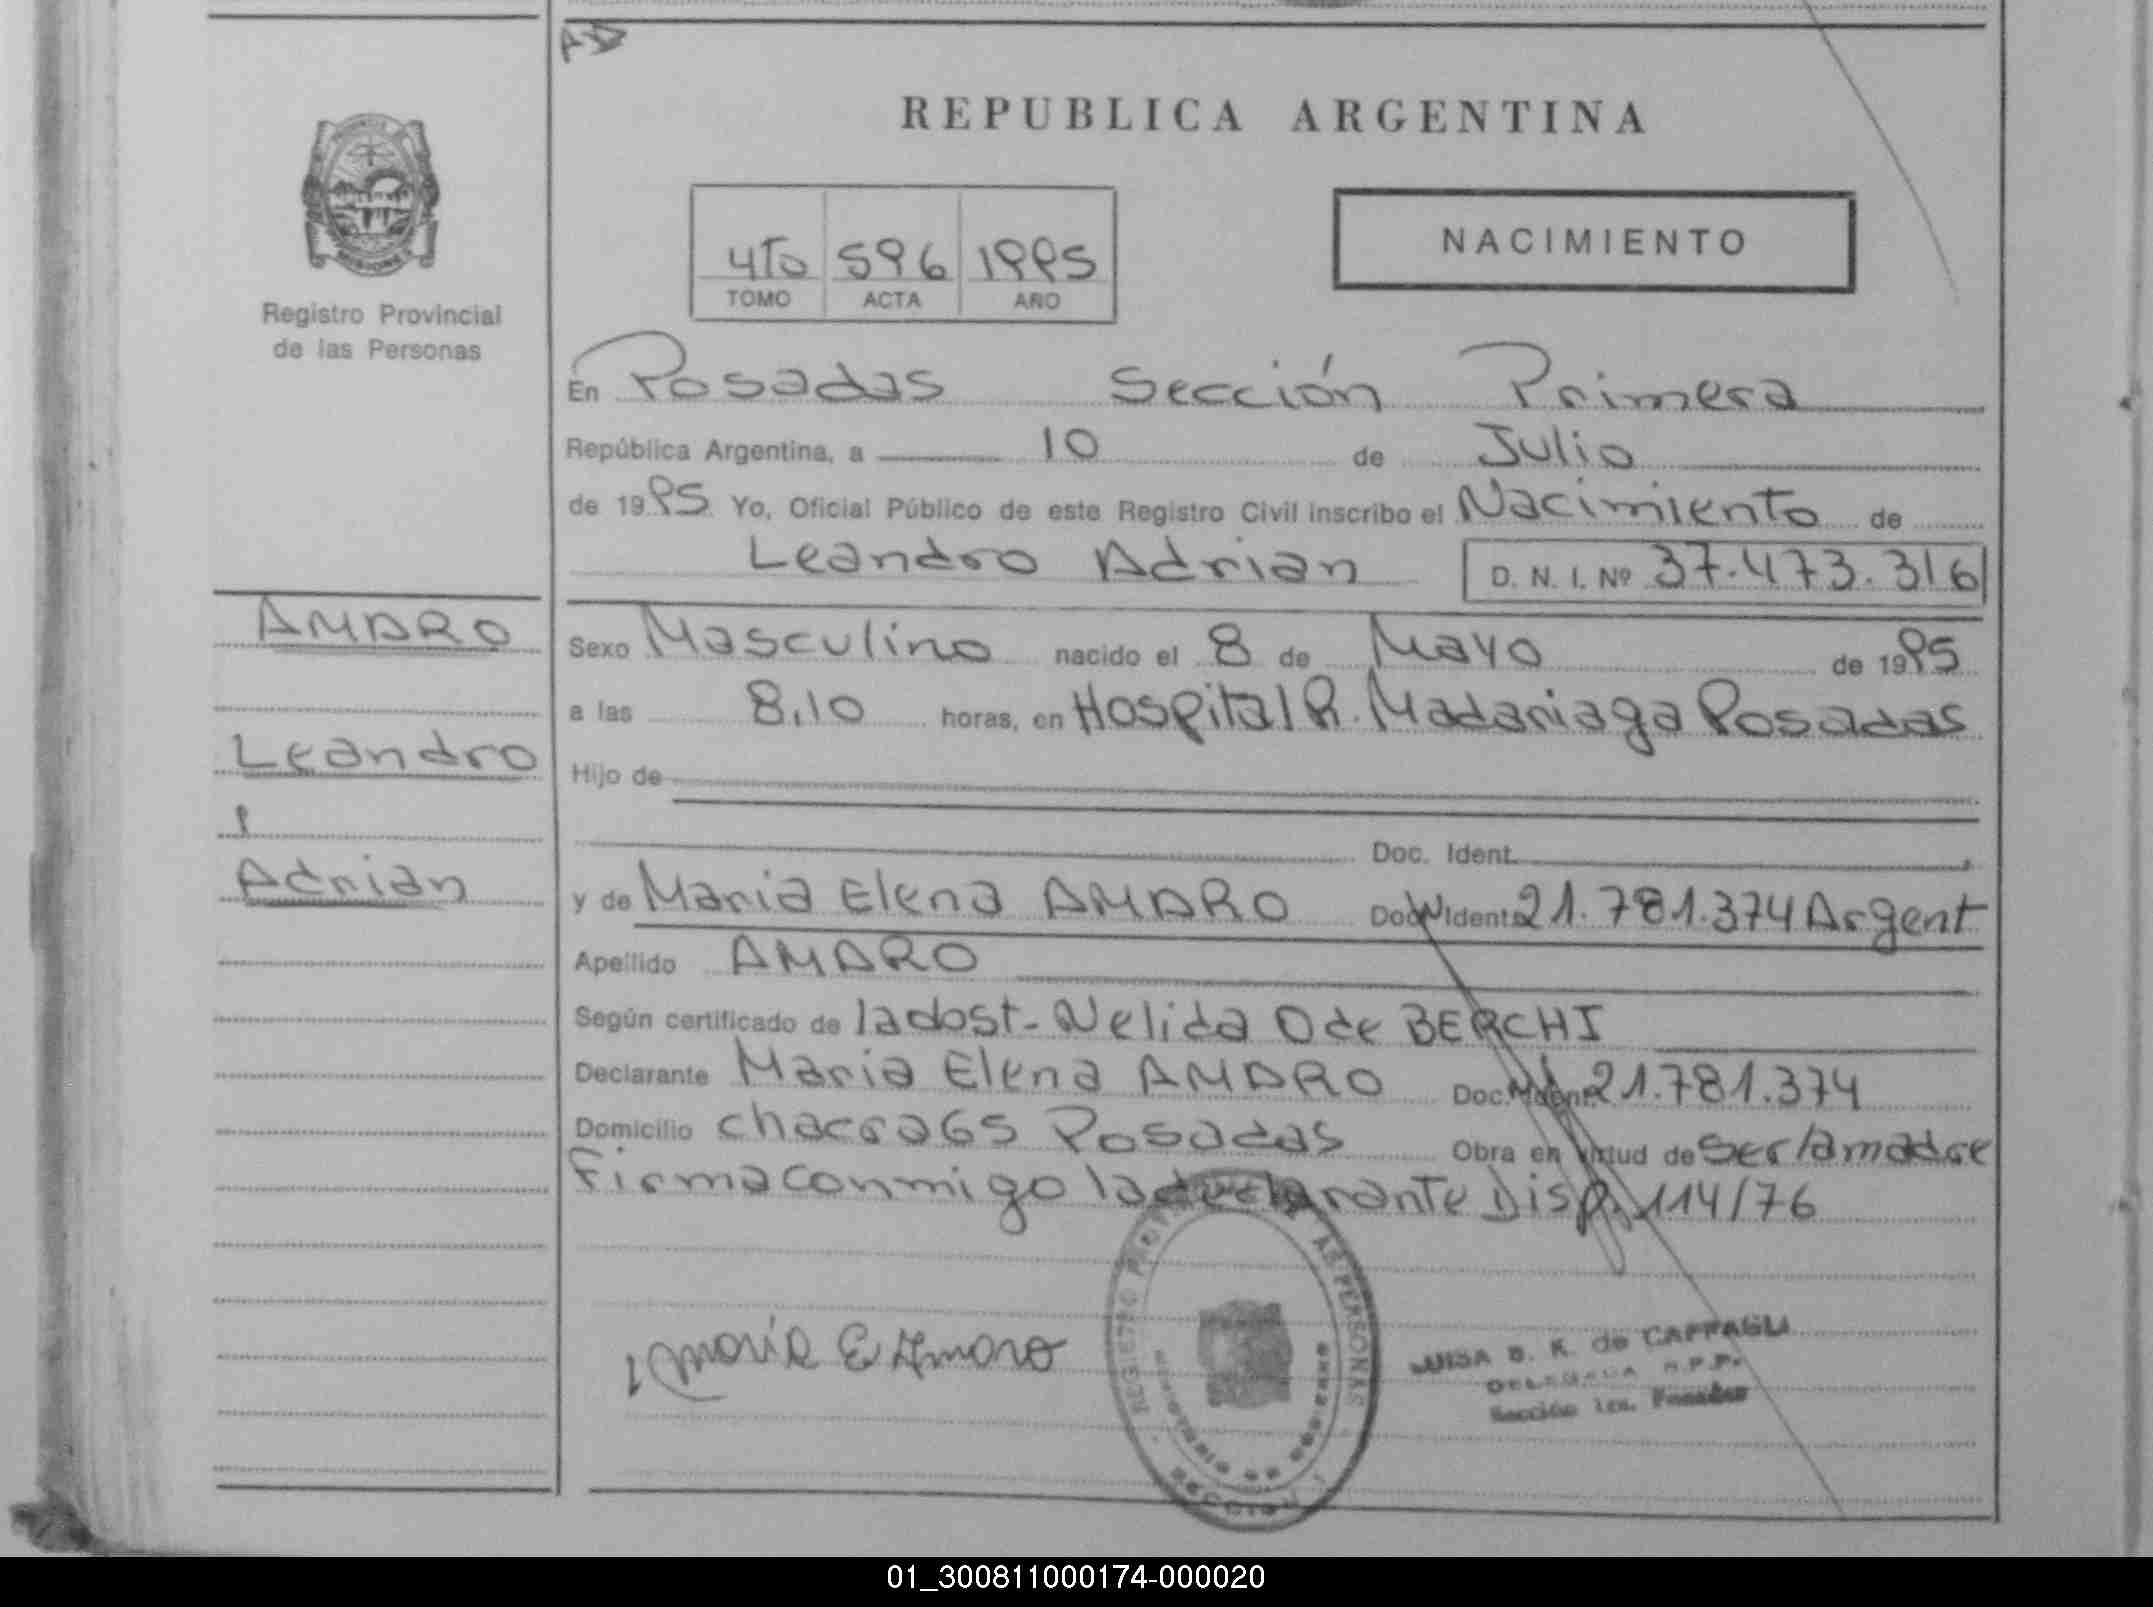 REPUBLICA ARGENTINA
4To 596 1995
TOMO ACTA AÑO
NACIMIENTO
Registro Provincial
de las Personas
En Posadas Sección Primera
República Argentina, a 10 de Julio
de 1995 Yo, Oficial Público de este Registro Civil inscribo el Nacimiento de
Leandro Adrian D. N. I. Nº 37.473.316
AMARO
Leandro
Adrian
Sexo Masculino nacido el 8 de Mayo de 1995
a las 8,10 horas, en Hospital R. Madariaga Posadas
Hijo de
Doc. Ident.
y de Maria Elena AMARO Doc. Ident. 21.781.374 Argent
Apellido AMARO
Según certificado de la obst. Nelida O de BERCHI
Declarante Maria Elena AMARO Doc. Ident. 21.781.374
Domicilio chacra 65 Posadas Obra en virtud de ser la madre
Firma conmigo la declarante Disp. 114/76
Maria E Amaro
REGISTRO PERSONAS
SECCION
LUISA B. K. de
DELEGADA R.P.P.
Sección 1ra. Posadas
01_300811000174-000020